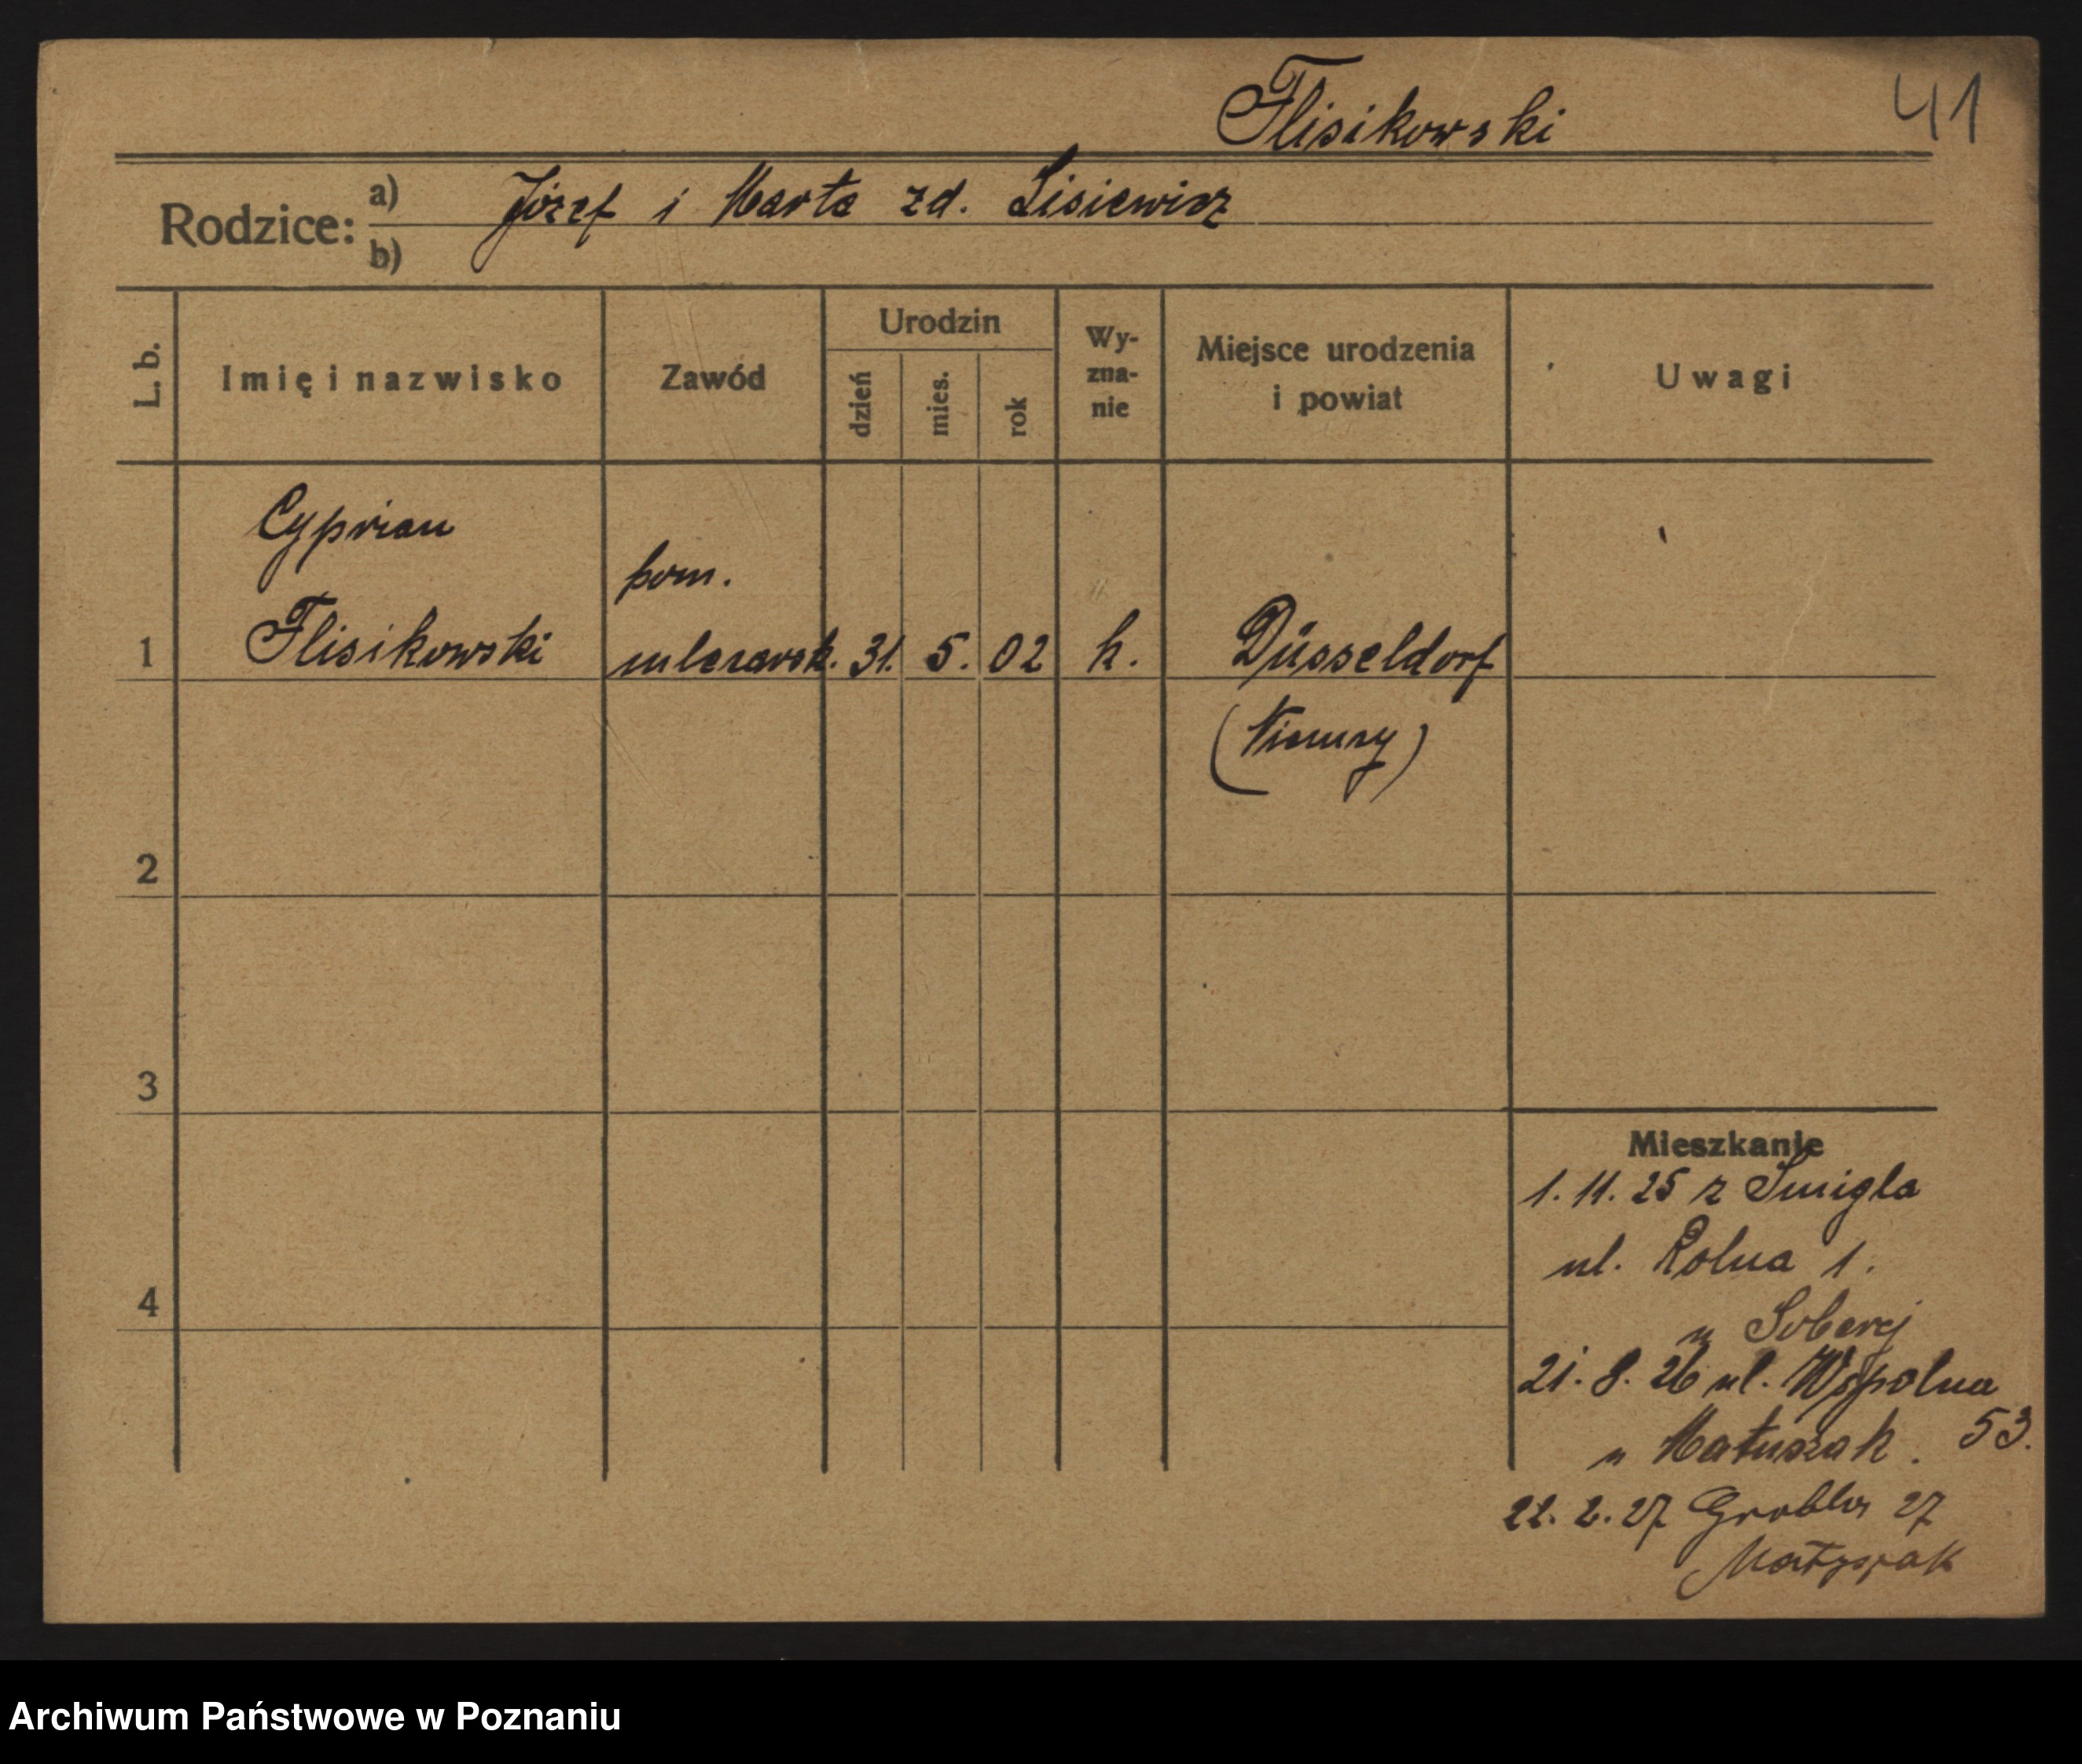 Flisikowski 41
Rodzice: a) Józef i Marta zd. Lisiewicz
b)
L. b. Imię i nazwisko Zawód Urodzin dzień mies. rok Wy-zna-nie Miejsce urodzenia i powiat Uwagi
Cyprian
pom.
1 Flisikowski mleczarsk. 31. 5. 02 k. Düsseldorf
(Niemcy)
2
3
Mieszkanie
1. 11. 25 z Śmigla
ul. Rolna 1.
4
u Soberej
21. 8. 26 ul. Wspolna
u Matuszak. 53.
22. 2. 27 Grobla 27
Matyszak
Archiwum Państwowe w Poznaniu